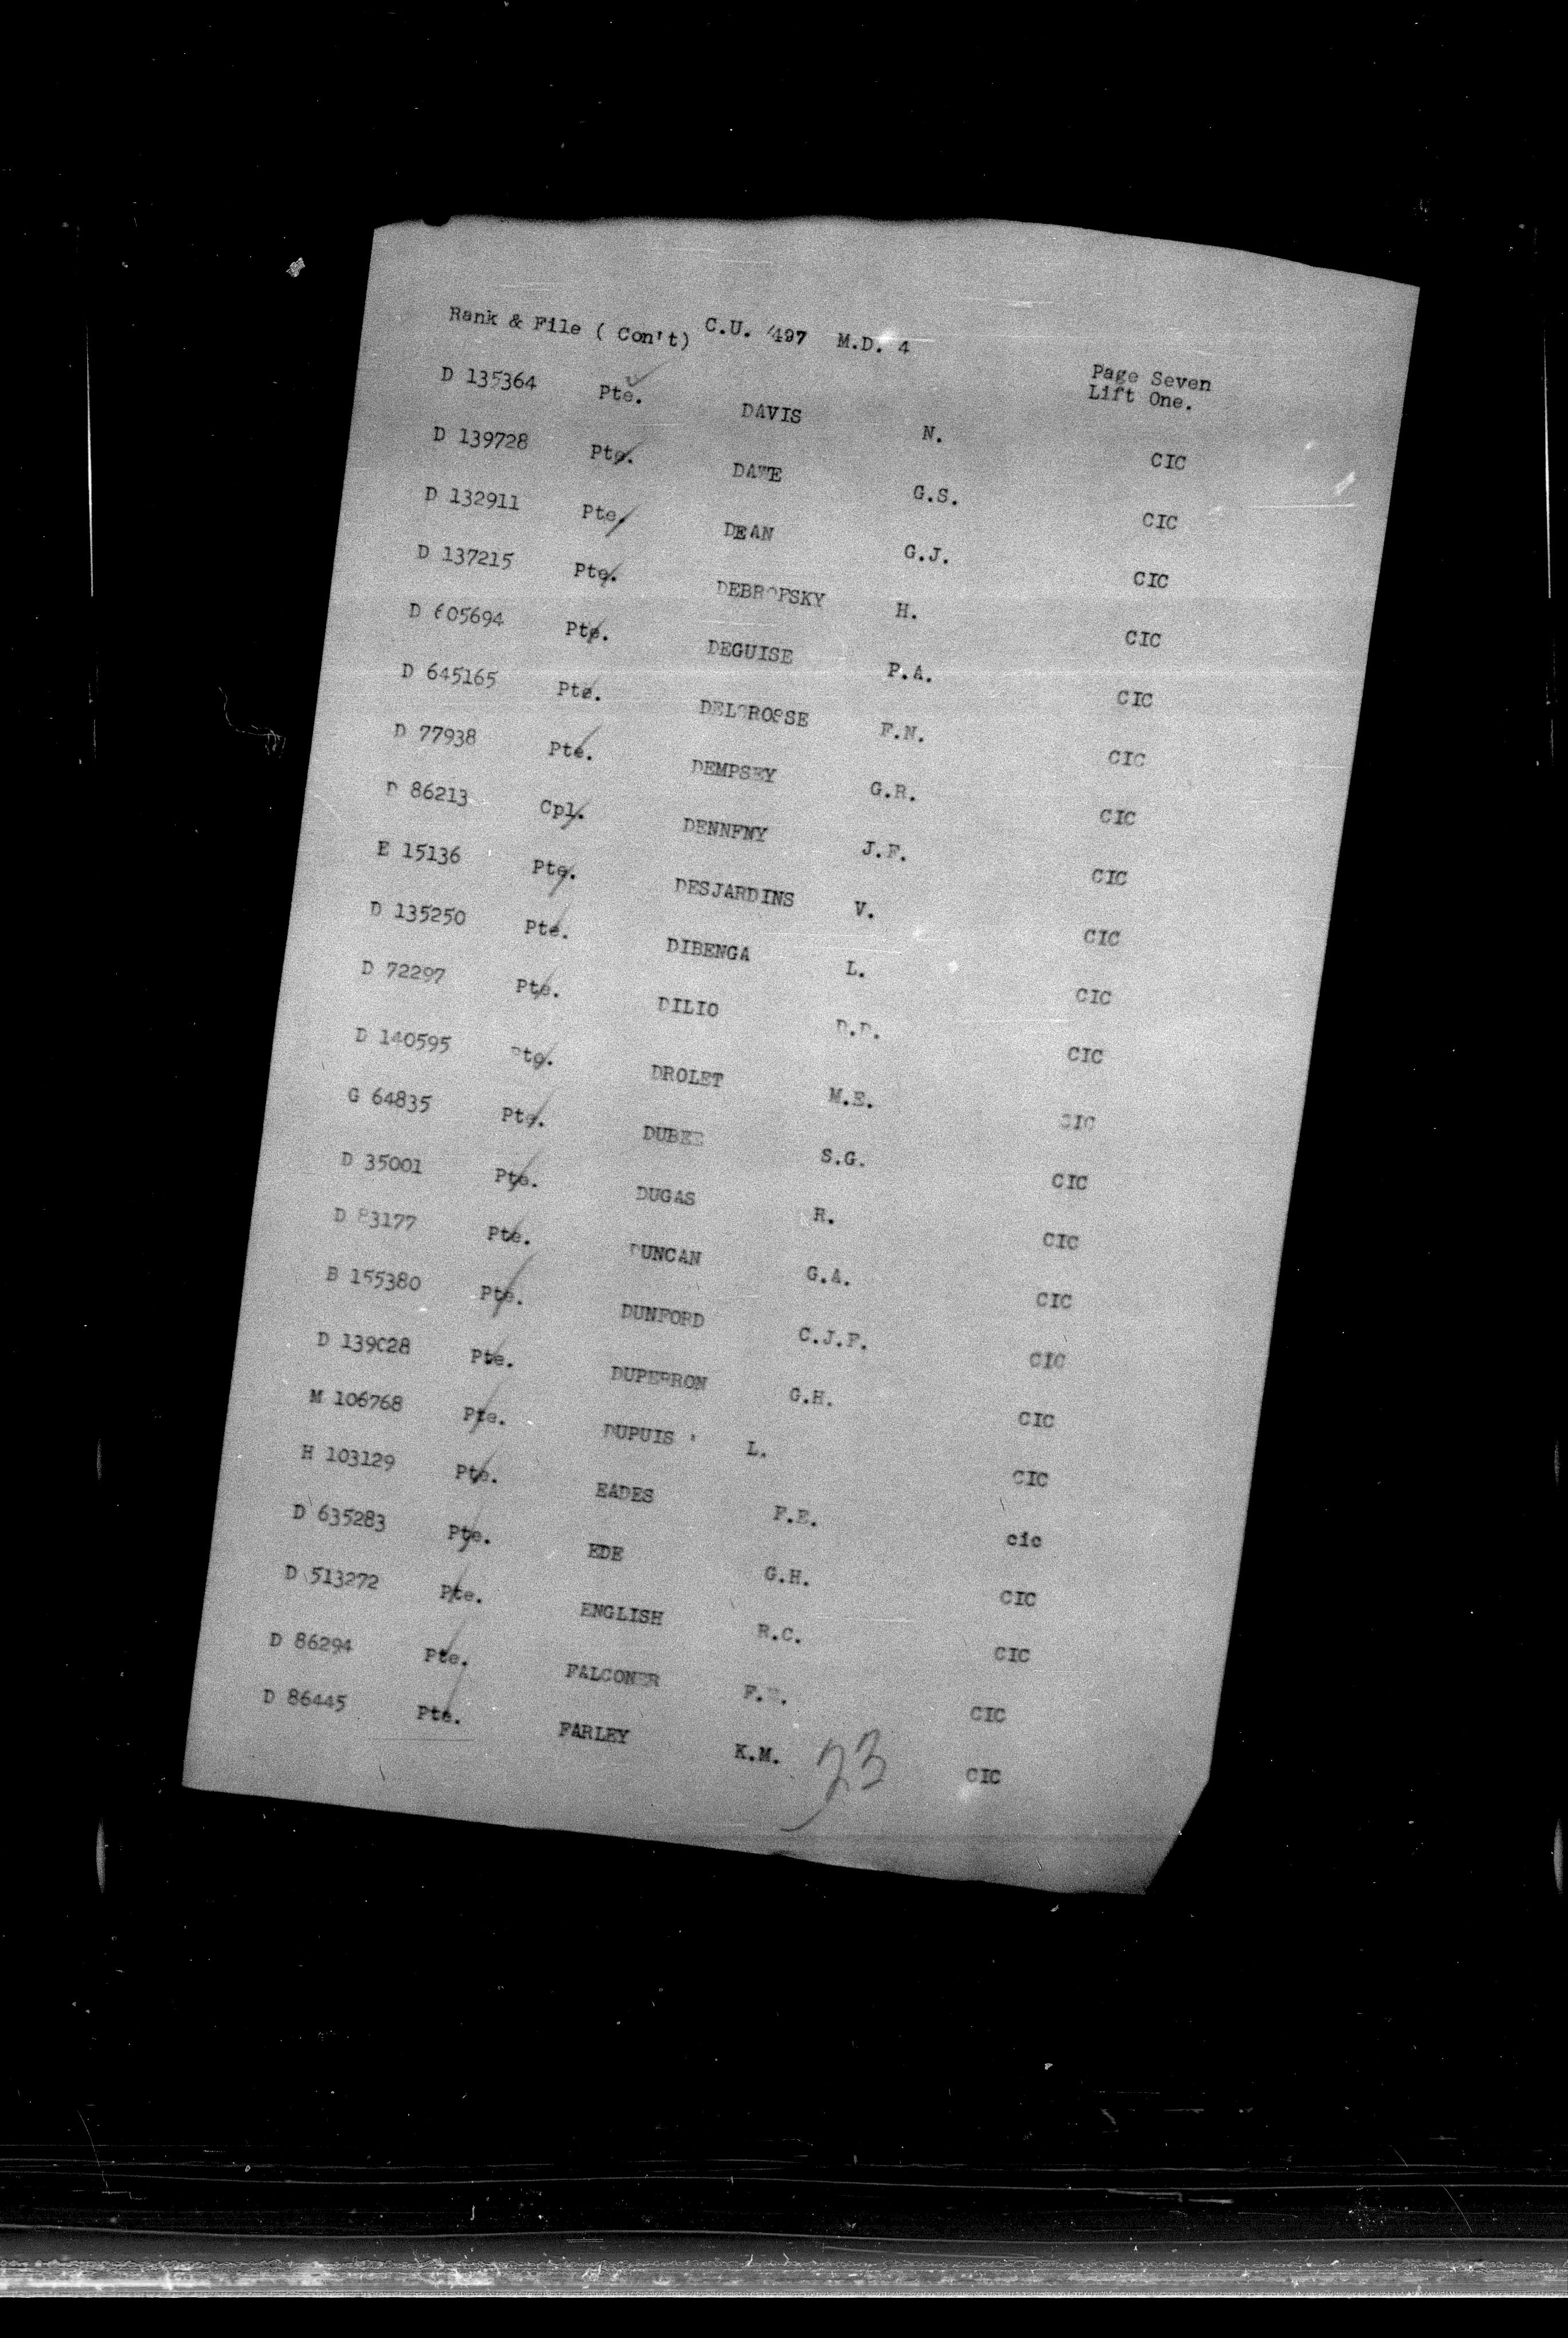 Rank & File ( Con't) C.U. 497 M.D. 4
Page Seven
Lift One.
D 135364 Pte. DAVIS N. CIC
D 139728 Pte. DAWE G.S. CIC
D 132911 Pte. DEAN G.J. CIC
D 137215 Pte. DEBROFSKY H. CIC
D 605694 Pte. DEGUISE P.A. CIC
D 645165 Pte. DELGROSSE F.N. CIC
D 77938 Pte. DEMPSEY G.R. CIC
D 86213 Cpl. DENNENY J.F. CIC
E 15136 Pte. DESJARDINS V. CIC
D 135250 Pte. DIBENGA L. CIC
D 72297 Pte. DILIO CIC
D 140595 Pte. DROLET M.E. CIC
G 64835 Pte. DUBEE S.G. CIC
D 35001 Pte. DUGAS R. CIC
D 83177 Pte. DUNCAN G.A. CIC
B 155380 Pte. DUNFORD C.J.F. CIC
D 139028 Pte. DUPERRON G.H. CIC
M 106768 Pte. DUPUIS L. CIC
H 103129 Pte. EADES F.E. cic
D 635283 Pte. EDE G.H. CIC
D 513272 Pte. ENGLISH R.C. CIC
D 86294 Pte. FALCONER CIC
D 86445 Pte. FARLEY K.M. CIC
23